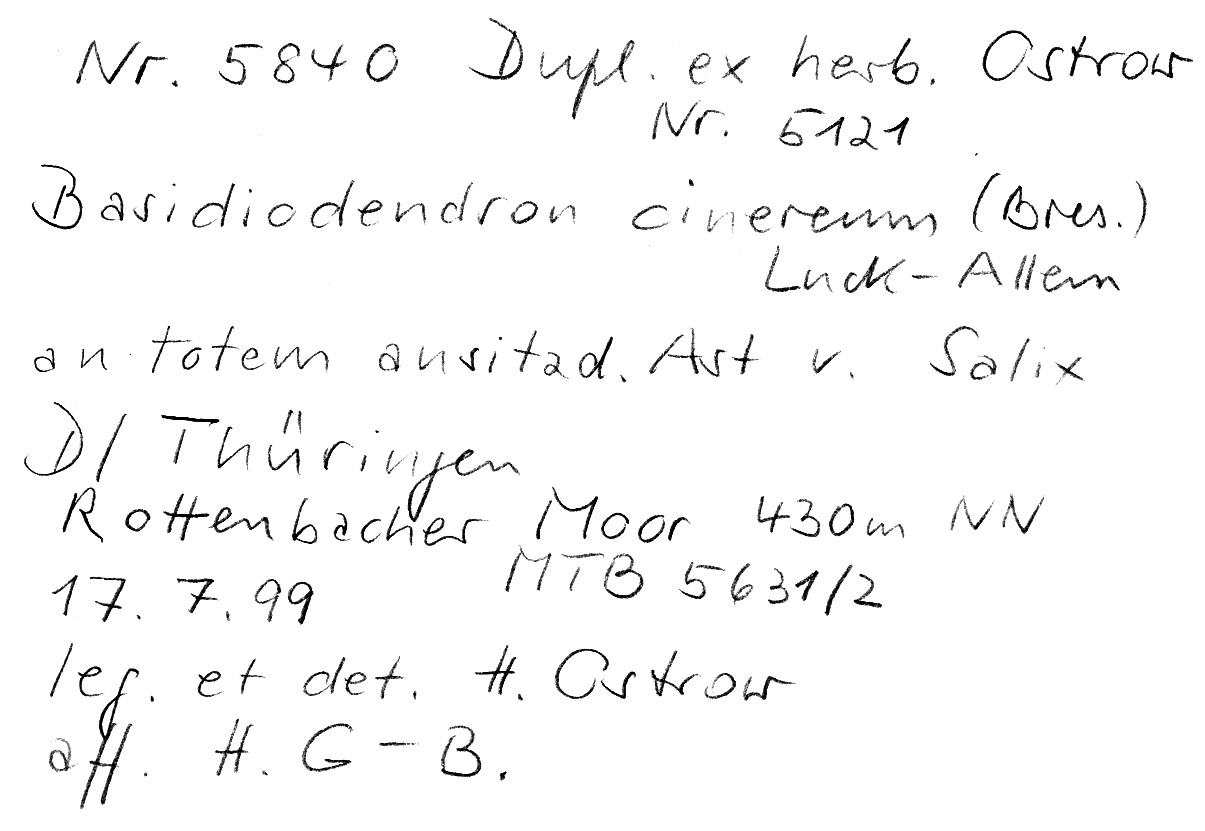 Nr. 5840 Dupl. ex herb. Ostrow
Nr. 5121
Basidiodendron cinereum (Bres.)
Luck-Allem
an totem ansitzd. Ast v. Salix
D/ Thüringen
Rottenbacher Moor 430m NN
17. 7. 99 MTB 5631/2
leg. et det. H. Ostrow
aff. H. G-B.